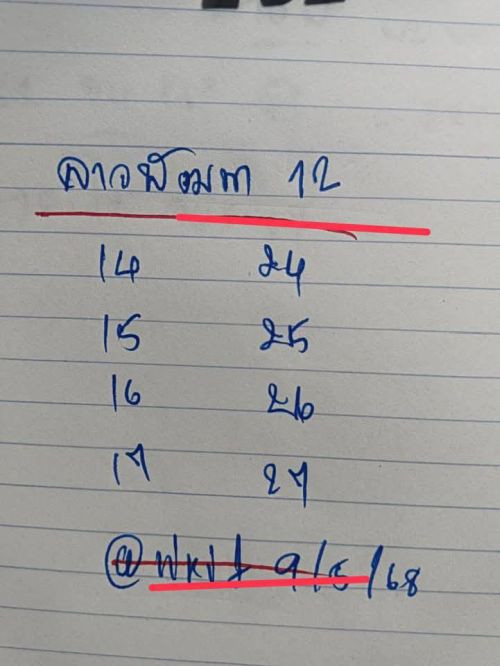 ลาวพัฒนา 12
14 24
15 25
16 26
17 27
@ 9/ /68